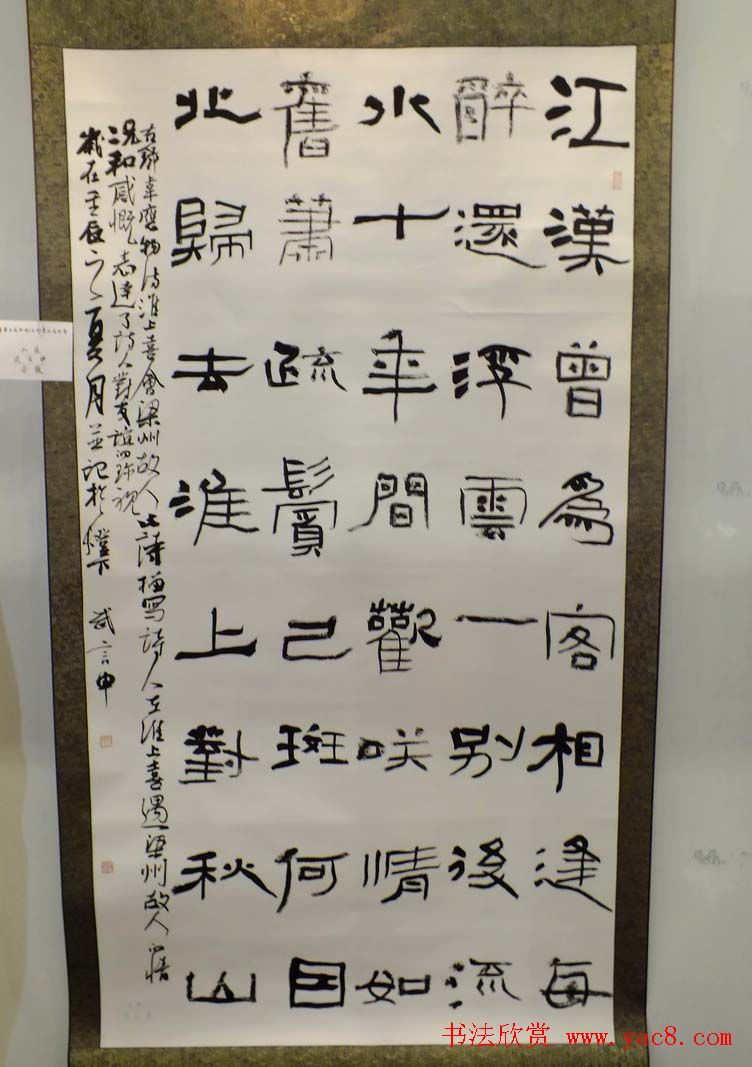 江漢曾爲客相逢每
醉還浮雲一别後流
水十年間歡咲情如
舊蕭疏鬢已斑何因
北歸去淮上對秋山
右録韋應物詩淮上喜會梁州故人此詩描寫詩人在淮上喜遇梁州故人的情
況和感慨表達了詩人對友誼的珍視
歲在壬辰之夏月並記於燈下 武言申
书法欣赏 www.yac8.com